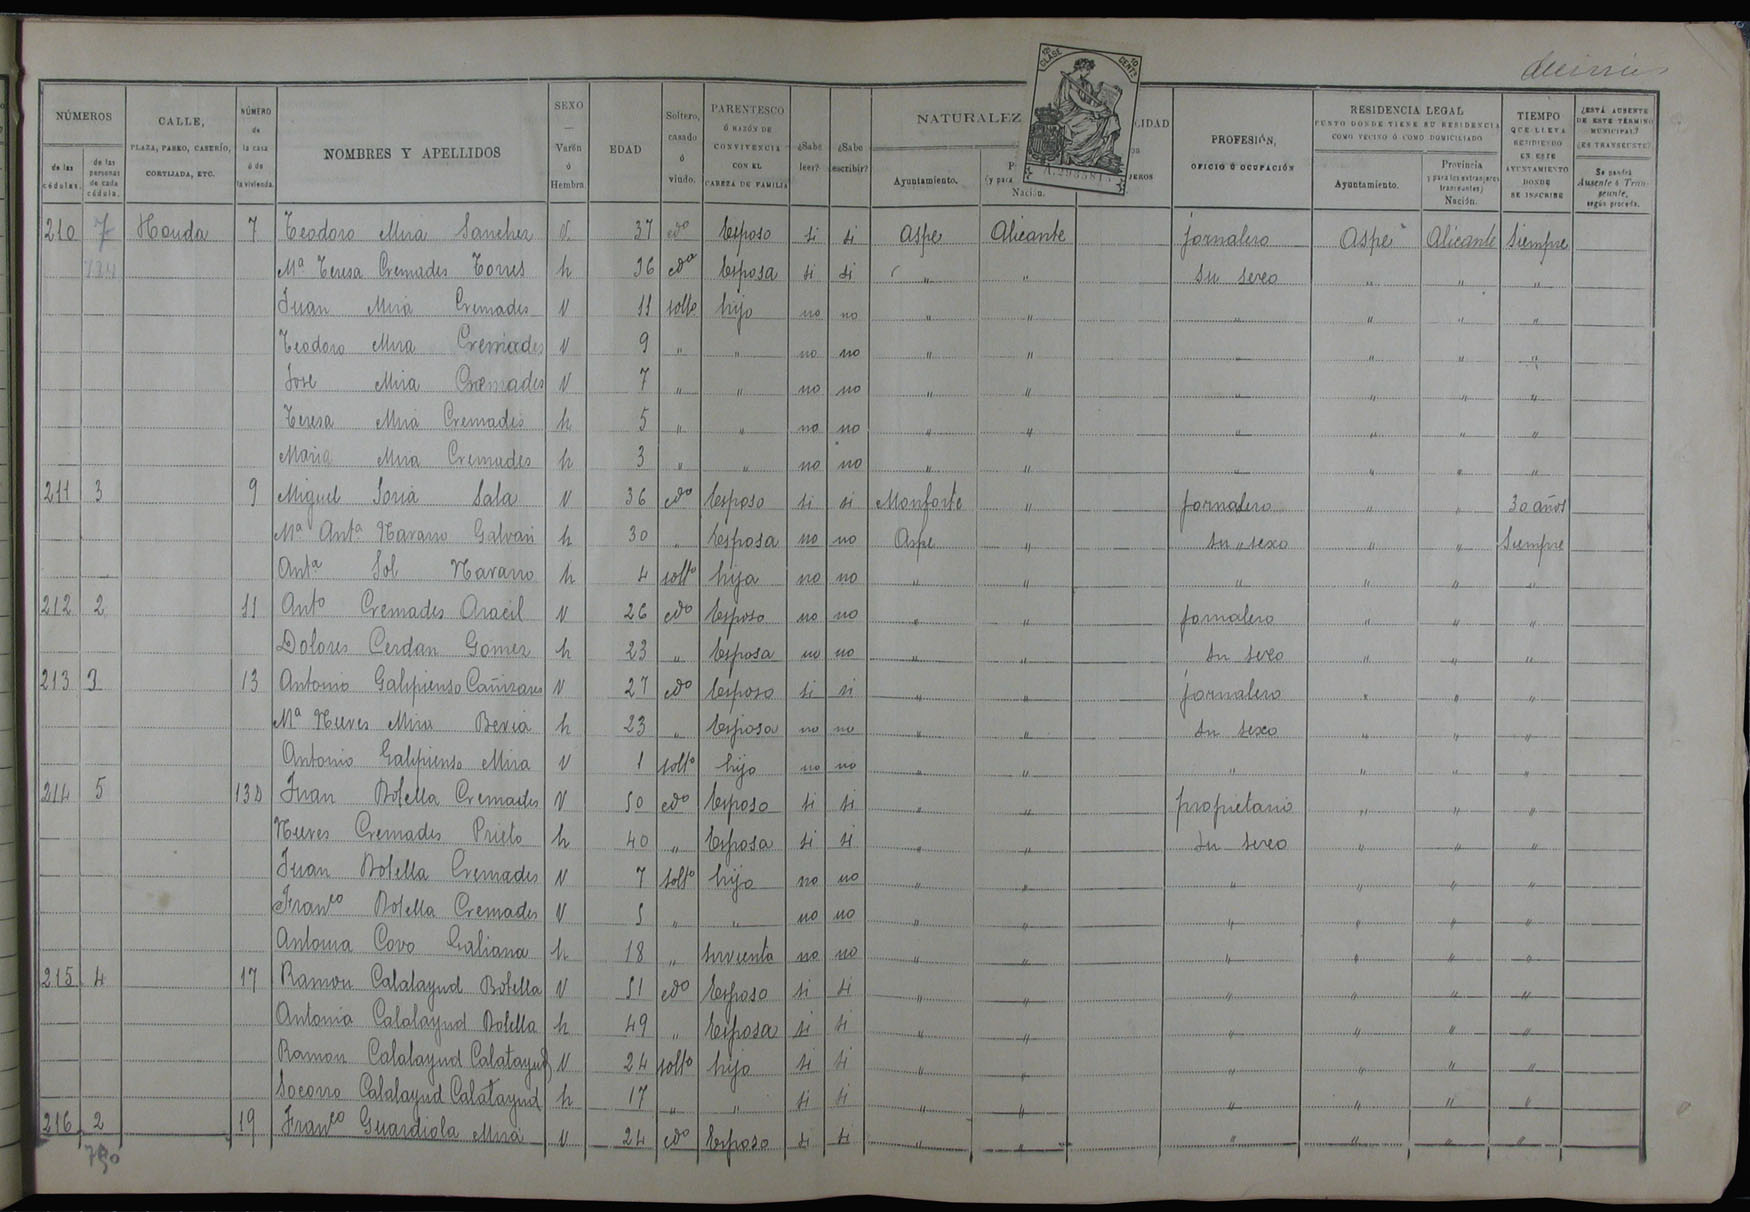 NÚMEROS
de las cédulas.
de las personas de cada cédula.
CALLE,
PLAZA, PASEO, CASERÍO,
CORTIJADA, ETC.
NÚMERO
de
la casa
ó de
la vivienda.
NOMBRES Y APELLIDOS
SEXO
Varón
ó
Hembra.
EDAD
Soltero,
casado
ó
viudo.
PARENTESCO
Ó RAZÓN DE
CONVIVENCIA
CON EL
CABEZA DE FAMILIA
¿Sabe leer?
¿Sabe escribir?
NATURALEZ
Ayuntamiento.
(y para
Nación.
CIDAD
JEROS
10ª CLASE
10 CENTS
PROFESIÓN,
OFICIO Ó OCUPACIÓN
RESIDENCIA LEGAL
PUNTO DONDE TIENE SU RESIDENCIA
COMO VECINO Ó COMO DOMICILIADO
Ayuntamiento.
Provincia
(y para los extranjeros
transeuntes)
Nación.
TIEMPO
QUE LLEVA
RESIDIENDO
EN ESTE
AYUNTAMIENTO
DONDE
SE INSCRIBE
¿ESTÁ AUSENTE
DE ESTE TÉRMINO
MUNICIPAL?
¿ES TRANSEUNTE?
Se pondrá
Ausente ó Tran-
seunte,
según proceda.
210 7 Honda 7 Teodoro Mira Sanchez V. 37 cdo Esposo si si Aspe Alicante jornalero Aspe Alicante Siempre
Mª Teresa Cremades Torres h 36 cda Esposa si si " " su sexo " " "
Juan Mira Cremades V 11 solto hijo no no " " " " " "
Teodoro Mira Cremades V 9 " " no no " " " " " "
Jose Mira Cremades V 7 " " no no " " " " " "
Teresa Mira Cremades h 5 " " no no " " " " " "
Maria Mira Cremades h 3 " " no no " " " " " "
211 3 9 Miguel Soria Sala V 36 cdo Esposo si si Monforte " jornalero " " 30 años
Mª Antª Navarro Galvañ h 30 " Esposa no no Aspe " su sexo " " Siempre
Antª Sol Navarro h 4 solto hija no no " " " " " "
212 2 11 Anto Cremades Aracil V 26 cdo Esposo no no " " jornalero " " "
Dolores Cerdan Gomez h 23 " Esposa no no " " su sexo " " "
213 3 13 Antonio Galipienso Cañizares V 27 cdo Esposo si si " " jornalero " " "
Mª Nieves Mira Beviá h 23 " Esposa no no " " su sexo " " "
Antonio Galipienso Mira V 1 solto hijo no no " " " " " "
214 5 13D Juan Botella Cremades V 50 cdo Esposo si si " " propietario " " "
Nieves Cremades Prieto h 40 " Esposa si si " " su sexo " " "
Juan Botella Cremades V 7 solto hijo no no " " " " " "
Franco Botella Cremades V 5 " " no no " " " " " "
Antonia Covo Galiana h 18 " sirvienta no no " " " " " "
215 4 17 Ramon Calatayud Botella V 51 cdo Esposo si si " " " " " "
Antonia Calatayud Botella h 49 " Esposa si si " " " " " "
Ramon Calatayud Calatayud V 24 solto hijo si si " " " "
Socorro Calatayud Calatayud h 17 " " si si " " " " " "
216 2 19 Franco Guardiola Mira V 24 cdo Esposo si si " " " " " "